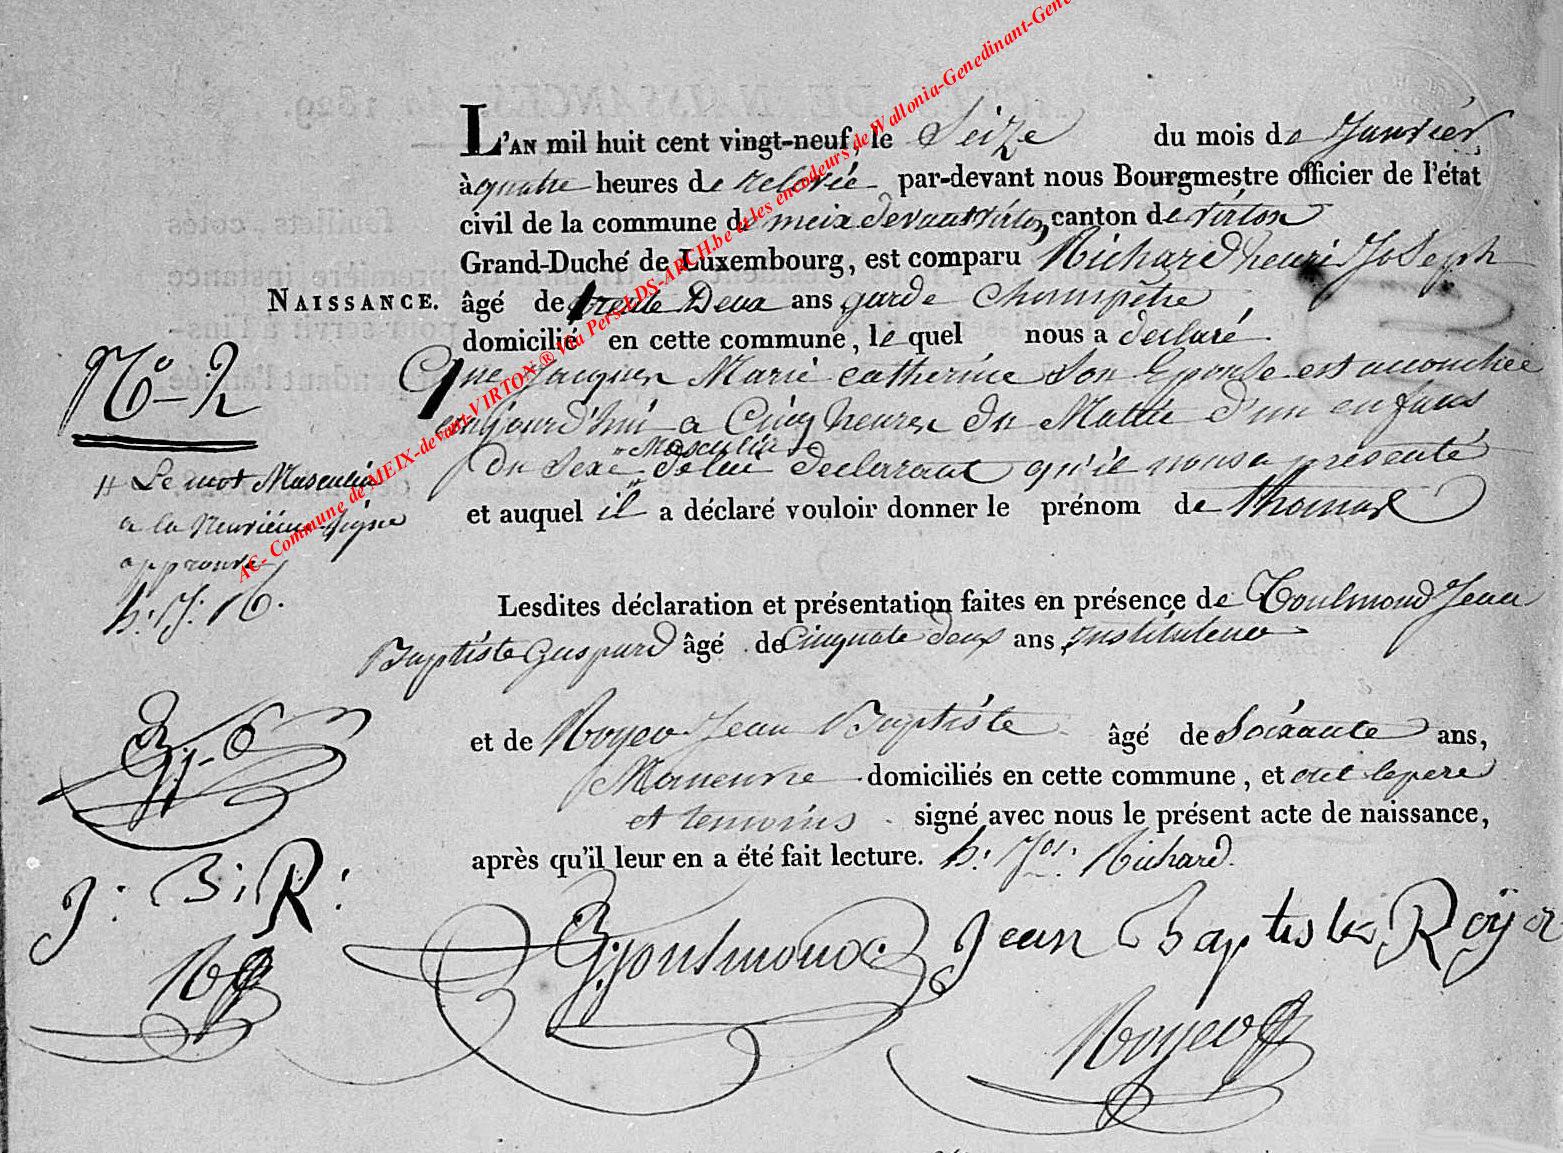 L'AN mil huit cent vingt-neuf, le Seize du mois de Janvier
à quatre heures de relevée par-devant nous Bourgmestre officier de l'état
civil de la commune de meix devant virton, canton de virton
Grand-Duché de Luxembourg, est comparu Richard henri Joseph
NAISSANCE.
âgé de trente Deux ans garde Champêtre
domicilié en cette commune, le quel nous a declaré
N° 2
Que Jacques Marie catherine Son Epouse est accouchée
aujourd'hui a Cinq heures du Matin d'un enfans
" Masculin
du Sexe de lui declarant qu'il nous a présenté
et auquel il a déclaré vouloir donner le prénom de thomas
# Le mot Masculin
a la neuvième ligne
approuvé
h: J: R.
Lesdites déclaration et présentation faites en présence de Toulmond Jean
Baptiste Gaspard âgé de Cinquate deux ans, instituteur
et de Royer Jean Baptiste âgé de Soixante ans,
Maneuvre domiciliés en cette commune, et ont le pere
et temoins signé avec nous le présent acte de naissance,
après qu'il leur en a été fait lecture. h: Jos: Richard
J: B: R:
Jean Baptiste Royer
AC- Commune de MEIX-devant-VIRTON ® Via Pers-LDS-ARCH.be et les encodeurs de Wallonia-Genedinant-Gene